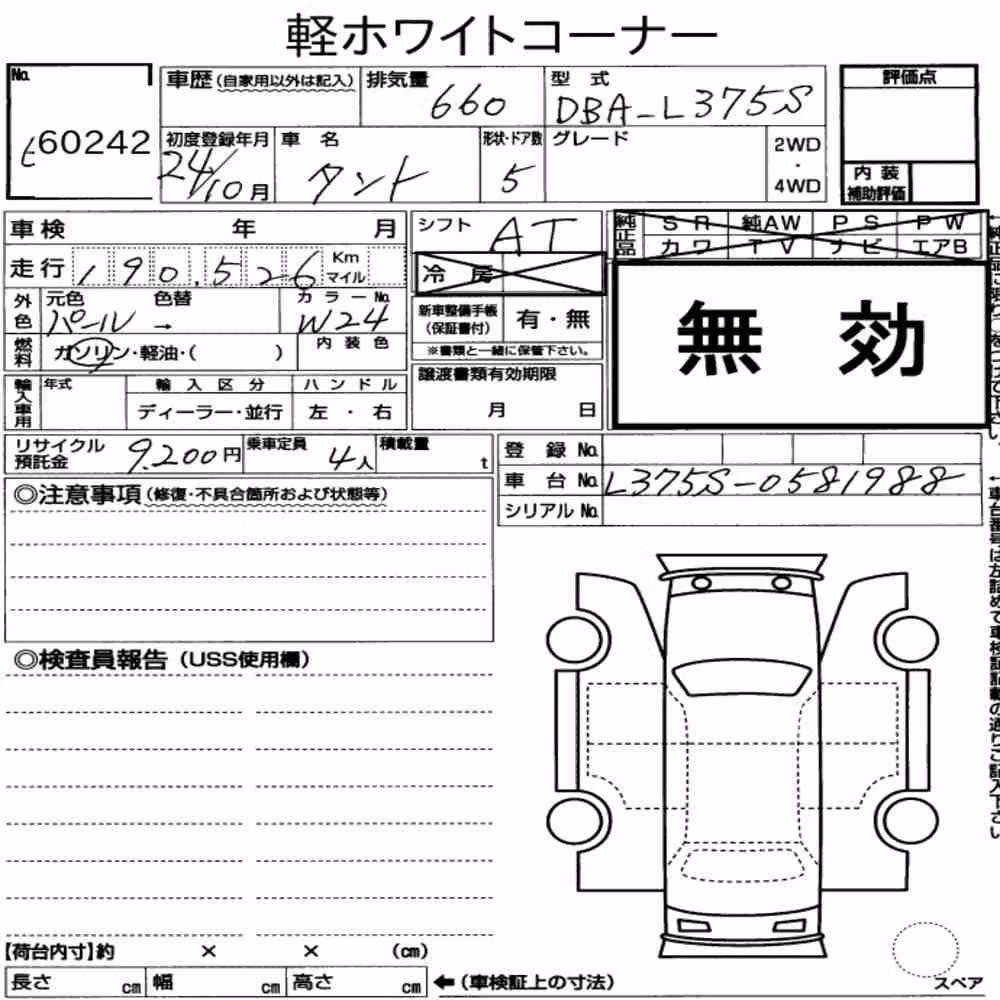 軽ホワイトコーナー
No. 車歴 (自家用以外は記入) 排気量 660 型式 DBA-L375S 評価点
60242
初度登録年月 24/10月 車名 タント 形状・ドア数 5 グレード 2WD・4WD
内装補助評価
車検 年 月 シフト AT 純正品 SR 純AW PS PW
カワ TV ナビ エアB
走行 190,526 Km マイル 冷房
外色 元色 パール 色替 → カラーNo. W24 新車整備手帳(保証書付) 有・無
※書類と一緒に保管下さい。
無効
燃料 ガソリン・軽油・( ) 内装色
輸入車用 年式 輸入区分 ハンドル 譲渡書類有効期限
ディーラー・並行 左・右 月 日
リサイクル預託金 9,200円 乗車定員 4人 積載量 t 登録No.
車台No. L375S-0581988
シリアルNo.
◎注意事項(修復・不具合箇所および状態等)
◎検査員報告(USS使用欄)
【荷台内寸】約 × × (cm)
長さ cm 幅 cm 高さ cm ←(車検証上の寸法)
スペア
←車台番号は左詰めで車検証記載の通りご記入下さい